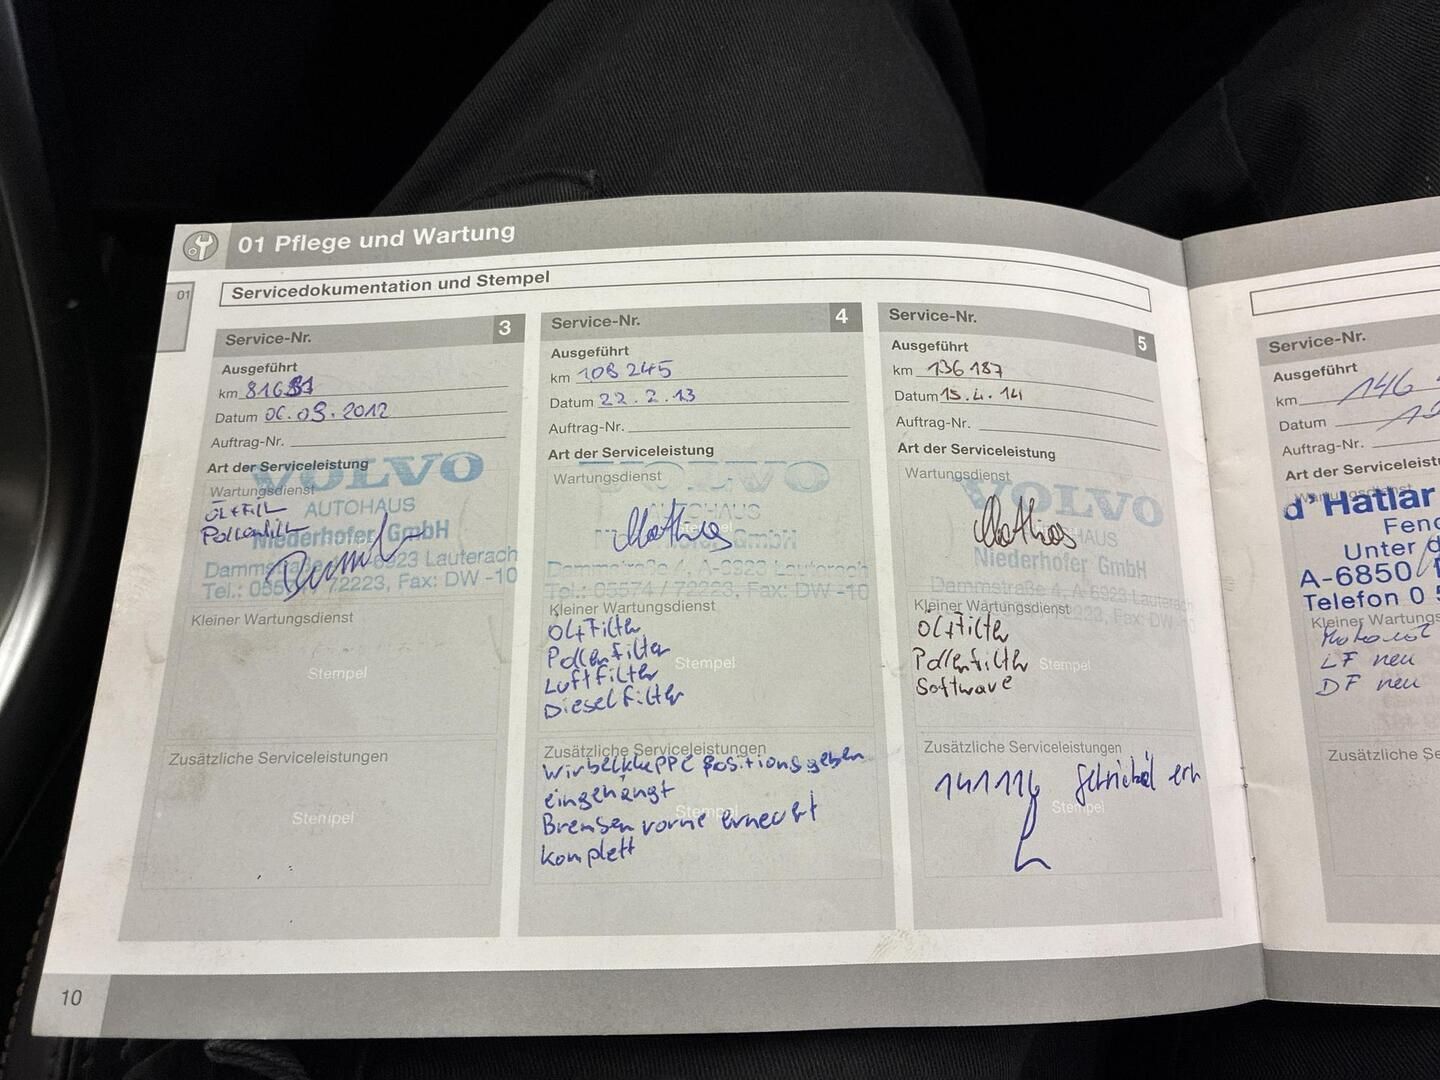 01 Pflege und Wartung
01
Servicedokumentation und Stempel
Service-Nr. 3
Ausgeführt
km 81681
Datum 06.09.2012
Auftrag-Nr.
Art der Serviceleistung
Wartungsdienst
VOLVO
Öl+Filt
AUTOHAUS
Pollenfilt
Niederhofer GmbH
Dammstraße 4, A-6923 Lauterach
Tel.: 05574 / 72223, Fax: DW -10
Kleiner Wartungsdienst
Stempel
Zusätzliche Serviceleistungen
Stempel
Service-Nr. 4
Ausgeführt
km 108 245
Datum 22.2.13
Auftrag-Nr.
Art der Serviceleistung
Wartungsdienst
VOLVO
AUTOHAUS
Mathias
Niederhofer GmbH
Dammstraße 4, A-6923 Lauterach
Tel.: 05574 / 72223, Fax: DW -10
Kleiner Wartungsdienst
Öl+Filter
Pollenfilter
Stempel
Luftfilter
Dieselfilter
Zusätzliche Serviceleistungen
Wirbelklappe Positionsgeber
eingehängt
Stempel
Bremsen vorne erneuert
komplett
Service-Nr. 5
Ausgeführt
km 136 187
Datum 15.4.14
Auftrag-Nr.
Art der Serviceleistung
Wartungsdienst
VOLVO
AUTOHAUS
Mathias
Niederhofer GmbH
Dammstraße 4, A-6923 Lauterach
Kleiner Wartungsdienst
Öl+Filter
Pollenfilter
Stempel
Software
Zusätzliche Serviceleistungen
141116
Stempel
10
Service-Nr.
Ausgeführt
km 146
Datum
Auftrag-Nr.
Art der Serviceleist
d'Hatlar
Unter d
A-6850
Telefon 0 5
Kleiner Wartungs
Motoröl
LF neu
DF neu
Zusätzliche Se